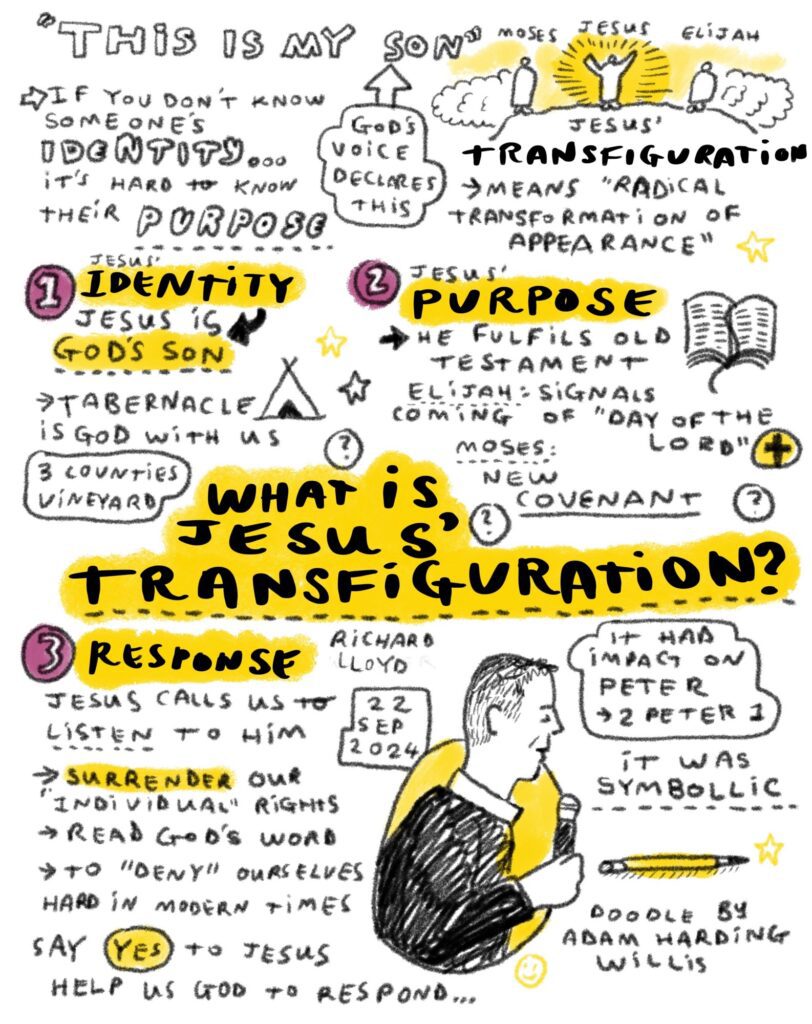 "THIS IS MY SON"
IF YOU DON'T KNOW
SOMEONE'S
IDENTITY...
IT'S HARD TO KNOW
THEIR PURPOSE
GOD'S
VOICE
DECLARES
THIS
MOSES JESUS ELIJAH
JESUS'
TRANSFIGURATION
→MEANS "RADICAL
TRANSFORMATION OF
APPEARANCE"
1 JESUS'
IDENTITY
JESUS IS
GOD'S SON
→TABERNACLE
IS GOD WITH US
3 COUNTIES
VINEYARD
2 JESUS'
PURPOSE
→HE FULFILS OLD
TESTAMENT
ELIJAH: SIGNALS
COMING OF "DAY OF THE
LORD" +
MOSES:
NEW
COVENANT
?
?
?
WHAT IS
JESUS'
TRANSFIGURATION?
3 RESPONSE
JESUS CALLS US TO
LISTEN TO HIM
→SURRENDER OUR
"INDIVIDUAL" RIGHTS
→READ GOD'S WORD
→TO "DENY" OURSELVES
HARD IN MODERN TIMES
SAY YES TO JESUS
HELP US GOD TO RESPOND...
RICHARD
LLOYD
22
SEP
2024
IT HAD
IMPACT ON
PETER
→2 PETER 1
IT WAS
SYMBOLLIC
DOODLE BY
ADAM HARDING
WILLIS